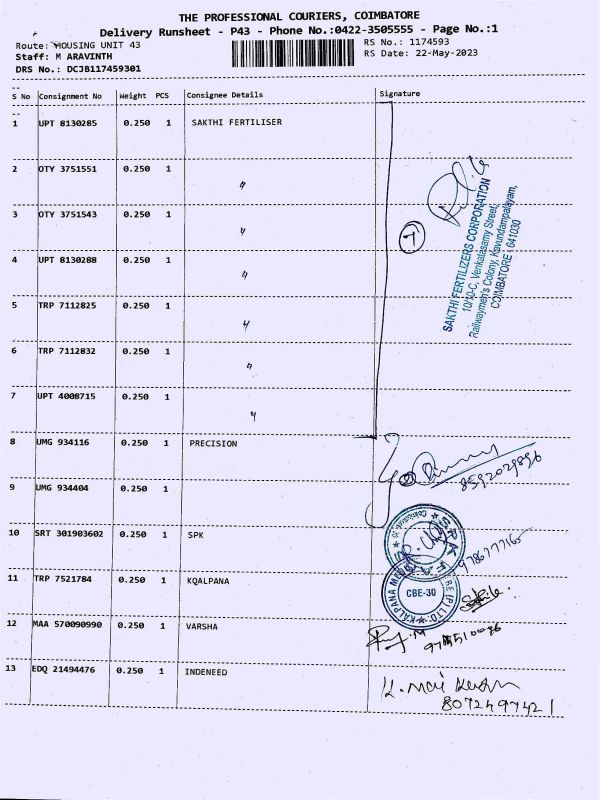 THE PROFESSIONAL COURIERS, COIMBATORE
Delivery Runsheet - P43 - Phone No.:0422-3505555 - Page No.:1
Route: HOUSING UNIT 43
RS No.: 1174593
Staff: M ARAVINTH
RS Date: 22-May-2023
DRS No.: DCJB117459301
S No Consignment No Weight PCS Consignee Details Signature
1 UPT 8130285 0.250 1 SAKTHI FERTILISER
2 OTY 3751551 0.250 1 〃
3 OTY 3751543 0.250 1 〃
4 UPT 8130288 0.250 1 〃
5 TRP 7112825 0.250 1 〃
6 TRP 7112832 0.250 1 〃
7 UPT 4008715 0.250 1 〃
7
SAKTHI FERTILIZERS CORPORATION
10/10-C, Venkatasamy Street,
Railwaymen's Colony, Kavundampalayam,
COIMBATORE - 641030
8 UMG 934116 0.250 1 PRECISION
2
8592029896
9 UMG 934404 0.250 1
10 SRT 301903602 0.250 1 SPK
11 TRP 7521784 0.250 1 KQALPANA
CBE-30
12 MAA 570090990 0.250 1 VARSHA
13 EDQ 21494476 0.250 1 INDENEED
8072497421